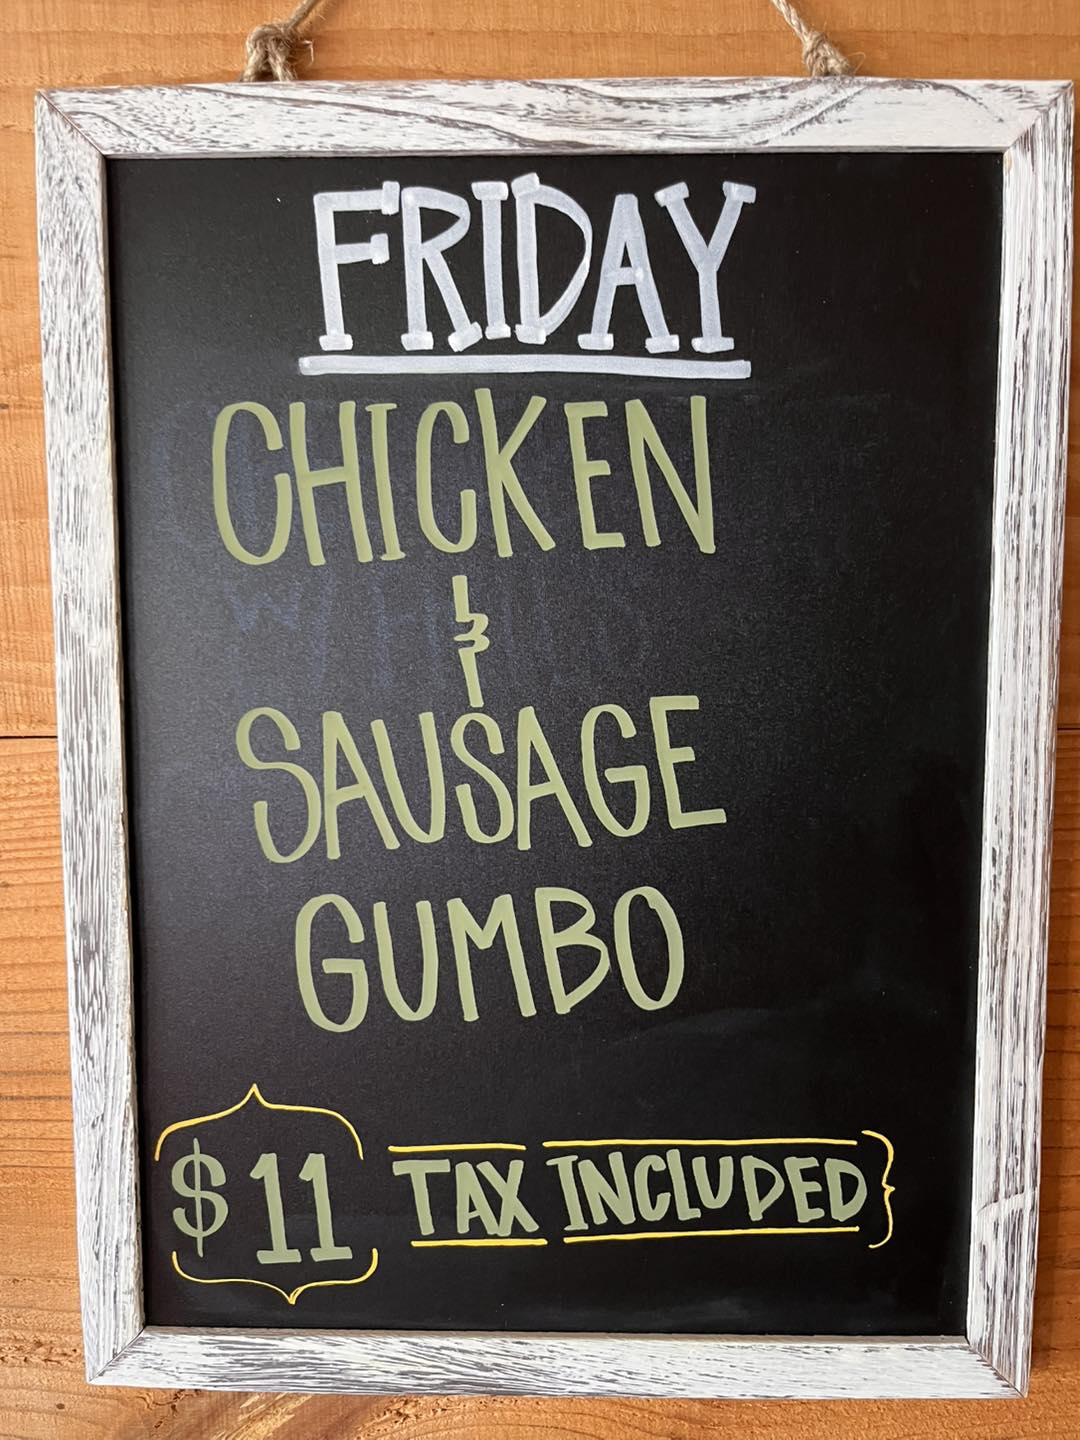 FRIDAY
CHICKEN
&
SAUSAGE
GUMBO
$11 TAX INCLUDED